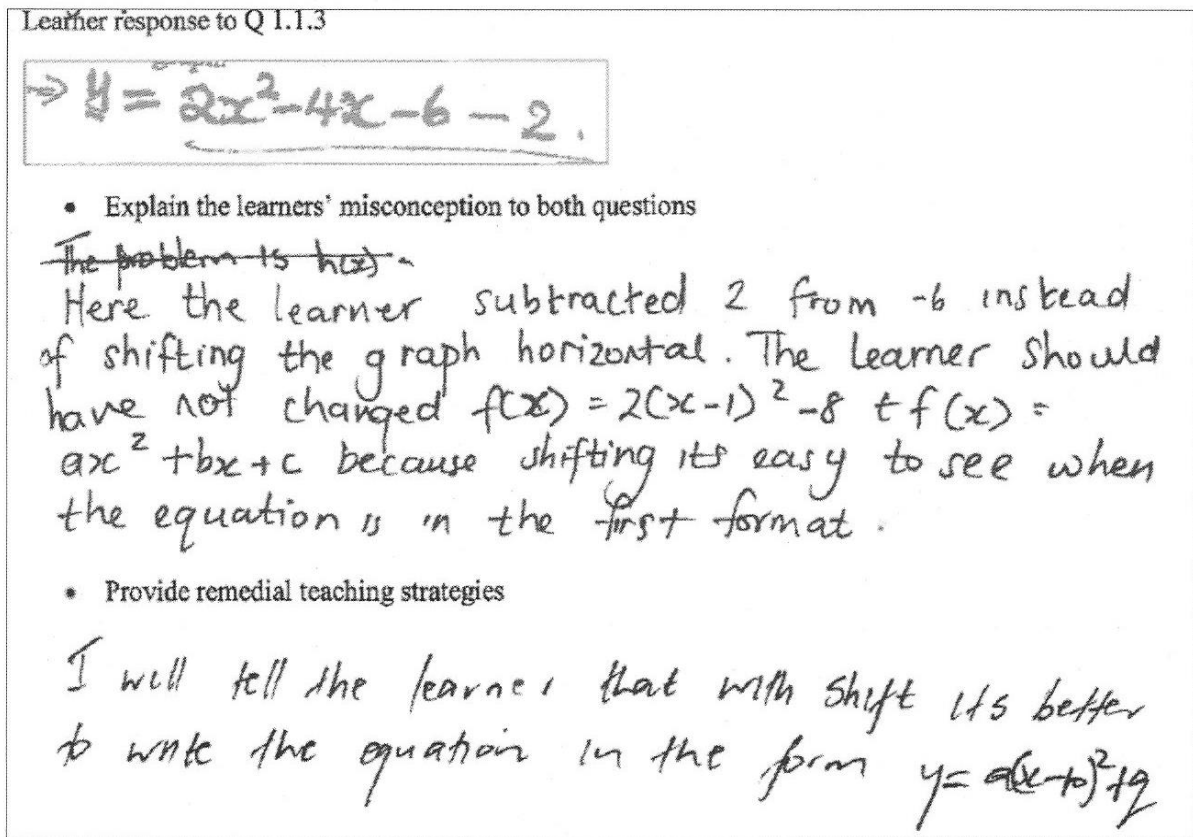 Learner response to Q 1.1.3
⇒ y = 2x² - 4x - 6 - 2.
• Explain the learners' misconception to both questions
The problem is h(x).
Here the learner subtracted 2 from -6 instead
of shifting the graph horizontal. The learner should
have not changed f(x) = 2(x-1)² - 8 t f(x) =
ax² + bx + c because shifting its easy to see when
the equation is in the first format.
• Provide remedial teaching strategies
I will tell the learner that with shift its better
to write the equation in the form y = a(x-p)² + q